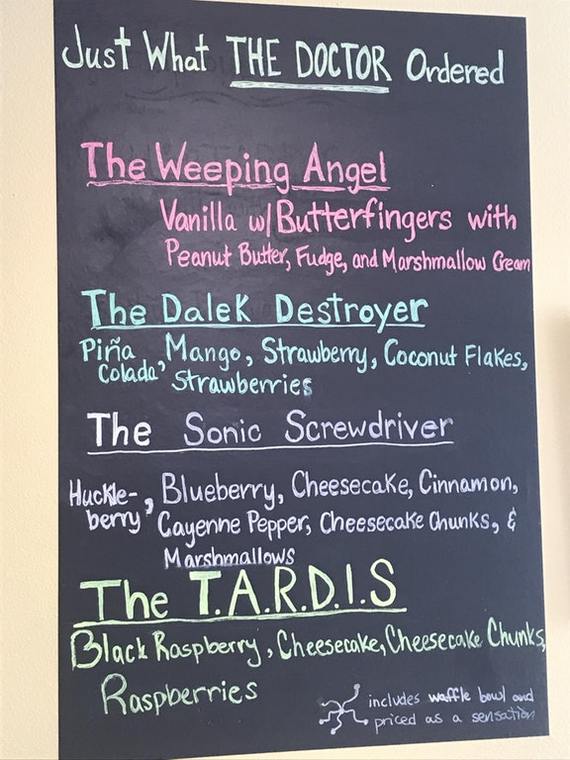 Just What THE DOCTOR Ordered
The Weeping Angel
Vanilla w/ Butterfingers with
Peanut Butter, Fudge, and Marshmallow Cream
The Dalek Destroyer
Piña Colada, Mango, Strawberry, Coconut Flakes,
Strawberries
The Sonic Screwdriver
Huckle-berry, Blueberry, Cheesecake, Cinnamon,
Cayenne Pepper, Cheesecake Chunks, &
Marshmallows
The T.A.R.D.I.S
Black Raspberry, Cheesecake, Cheesecake Chunks,
Raspberries
includes waffle bowl and
priced as a sensation